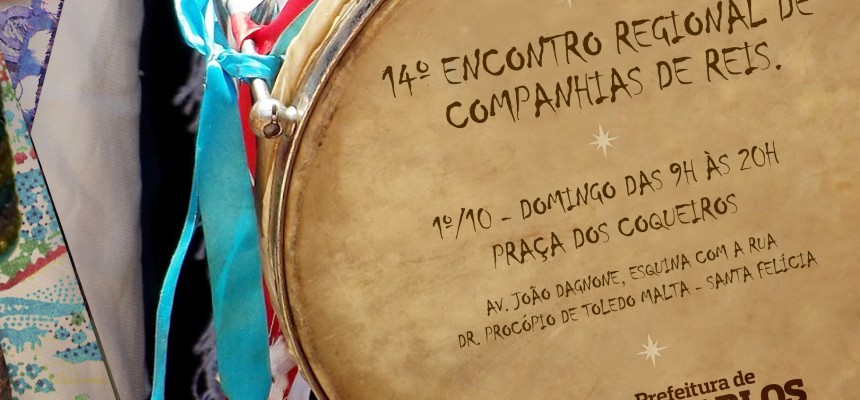 14º ENCONTRO REGIONAL DE
COMPANHIAS DE REIS.
1º/10 - DOMINGO DAS 9H ÀS 20H
PRAÇA DOS COQUEIROS
AV. JOÃO DAGNONE, ESQUINA COM A RUA
DR. PROCÓPIO DE TOLEDO MALTA - SANTA FELÍCIA
Prefeitura de